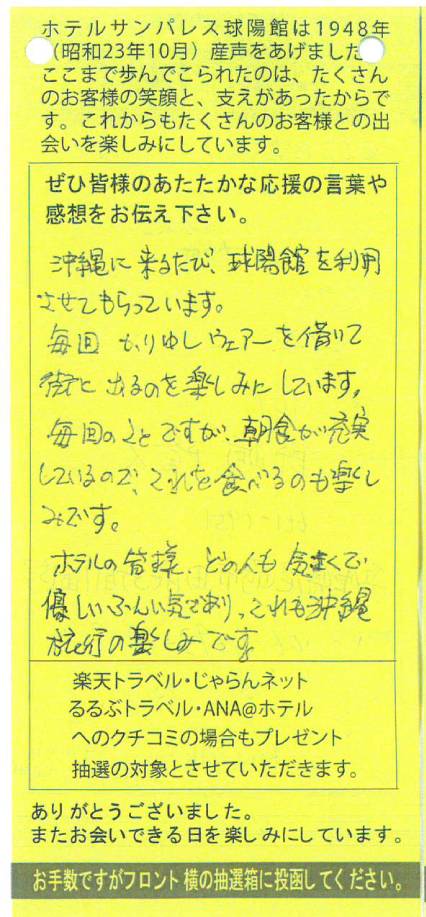 ホテルサンパレス球陽館は1948年
(昭和23年10月)産声をあげました
ここまで歩んでこられたのは、たくさん
のお客様の笑顔と、支えがあったからで
す。これからもたくさんのお客様との出
会いを楽しみにしています。
ぜひ皆様のあたたかな応援の言葉や
感想をお伝え下さい。
沖縄に来るたび、球陽館を利用
させてもらっています。
毎回 かりゆしウェアーを借りて
街に出るのを楽しみにしています。
毎回のことですが、朝食が充実
しているので、それを食べるのも楽し
みです。
ホテルの皆様、どの人も気さくで
優しいふんい気であり、これも沖縄
旅行の楽しみです
楽天トラベル・じゃらんネット
るるぶトラベル・ANA@ホテル
へのクチコミの場合もプレゼント
抽選の対象とさせていただきます。
ありがとうございました。
またお会いできる日を楽しみにしています。
お手数ですがフロント横の抽選箱に投函してください。